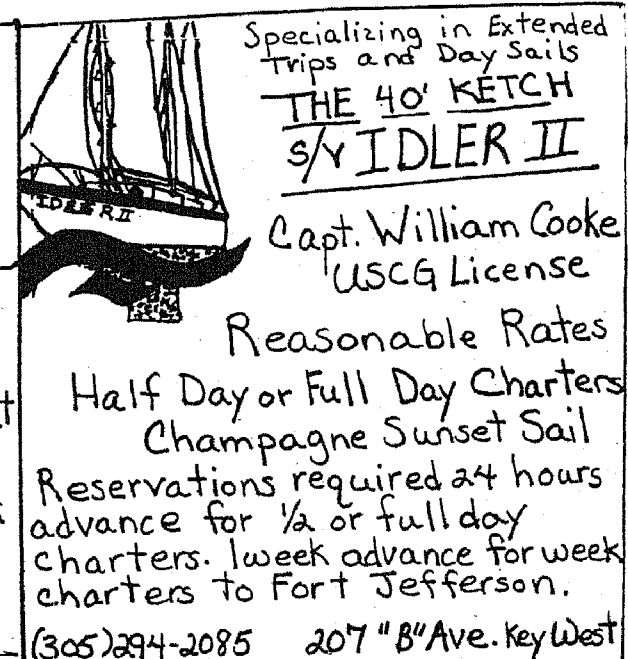 Specializing in Extended
Trips and Day Sails
THE 40' KETCH
S/V IDLER II
IDLER II
Capt. William Cooke
USCG License
Reasonable Rates
Half Day or Full Day Charters
Champagne Sunset Sail
Reservations required 24 hours
advance for 1/2 or full day
charters. 1 week advance for week
charters to Fort Jefferson.
(305)294-2085 207 "B" Ave. Key West